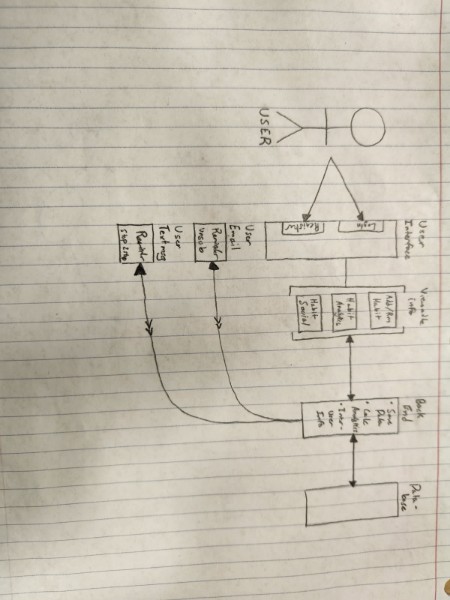 USER
User
Interface
Login
Register
Viewable
Info
Add/Rem
Habit
Habit
Analytics
Habit
Social
Back
End
• Save
Data
• Calc
Analytics
• Inter-
User
Info
Data-
base
User
Email
Reminder
Unsub
User
Text msg
Reminder